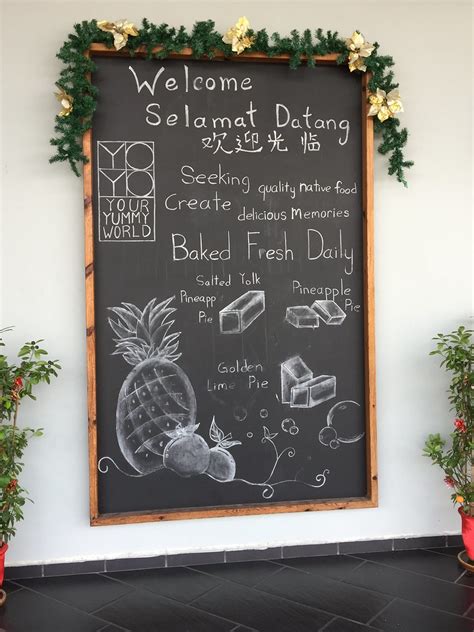 Welcome
Selamat Datang
欢迎光临
YO
YO
YOUR
YUMMY
WORLD
Seeking quality native food
Create delicious Memories
Baked Fresh Daily
Salted Yolk
Pineapp
Pie
Pineapple
Pie
Golden
Lime Pie